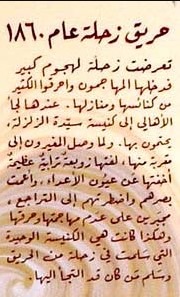 حريق زحلة عام ١٨٦٠
تعرضت زحلة لهجوم كبير
فدخلها المهاجمون واحرقوا الكثير
من كنائسها ومنازلها. عندها لجأ
الأهالي إلى كنيسة سيّدة الزلزلة،
يحتمون بها. ولما وصل المغيرون إلى
مقربة منها، لفتها زوبعة ترابيّة عظيمة
أخفتها عن عيون الأعداء، وأعمت
بصرهم واضطرتهم إلى التراجع،
مجبرين على عدم مهاجمتها وحرقها
وهكذا كانت هي الكنيسة الوحيدة
التي سلمت في زحلة من الحريق
وسلم من كان قد التجأ اليها.